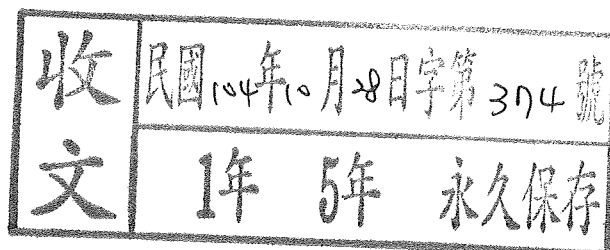 收文
民國104年10月28日字第374號
1年 5年 永久保存